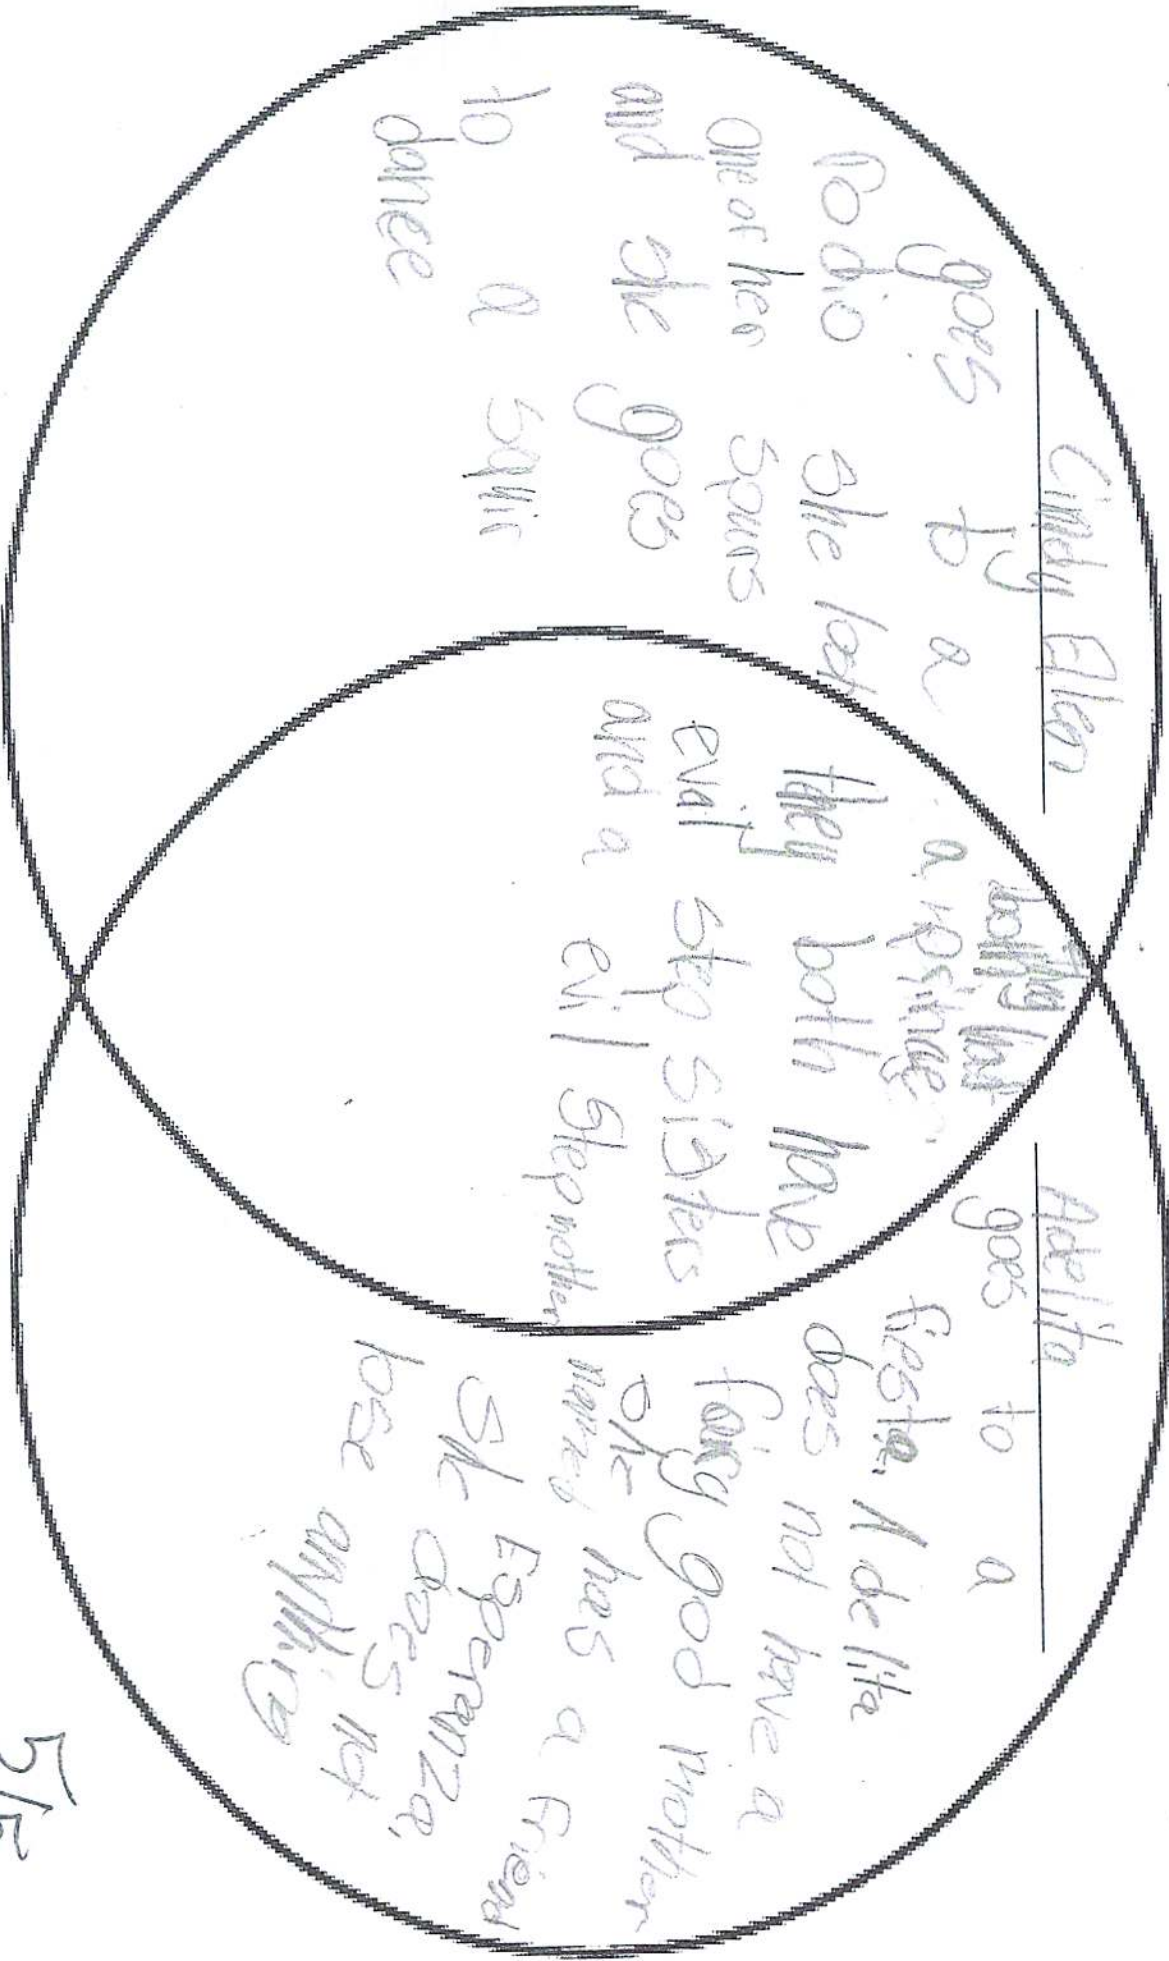 Cindy Ellen
goes to a
Rodio she lost
one of her spurs
and she goes
to a sqair
dance
They
both lost
a
they both have
evail step sisters
and a evil step mother
Adelita
goes to a
fiesta. Adelita
does not have a
fairy god mother
She has a Friend
named Esperanza,
She does not
lose anything
5/5